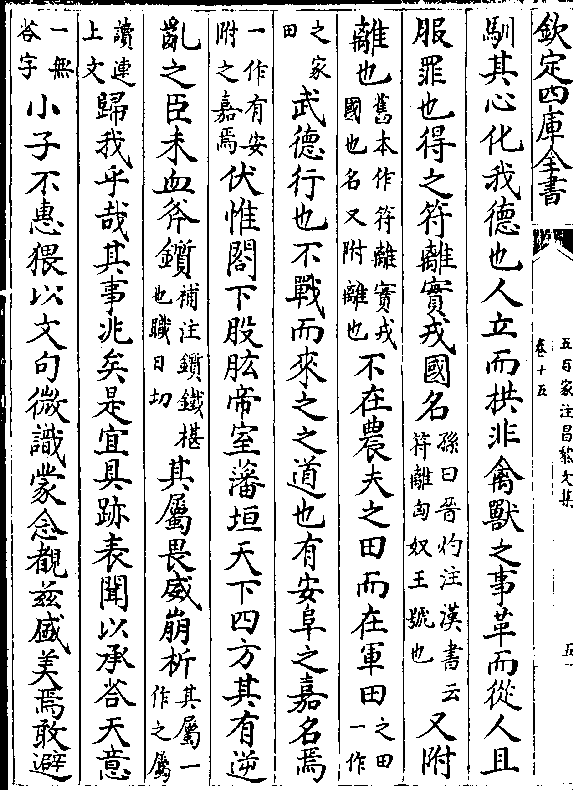 欽定四庫全書
五百家注昌黎文集
卷十五
五
馴其心化我德也人立而拱非禽獸之事革而從人且
服罪也得之符離實戎國名孫曰晉灼注漢書云符離匈奴王號也又附
離也舊本作符離實戎國也名又附離也不在農夫之田而在軍田之田一作
之家田武德行也不戰而來之之道也有安阜之嘉名焉
一作有安附之嘉焉伏惟閤下股肱帝室藩垣天下四方其有逆
亂之臣未血斧鑕補注鑕鐵椹也職日切其屬畏威崩析其屬一作之屬
讀連上文歸我乎哉其事兆矣是宜具跡表聞以承答天意
一無答字小子不惠猥以文句微識蒙念覩兹盛美焉敢避